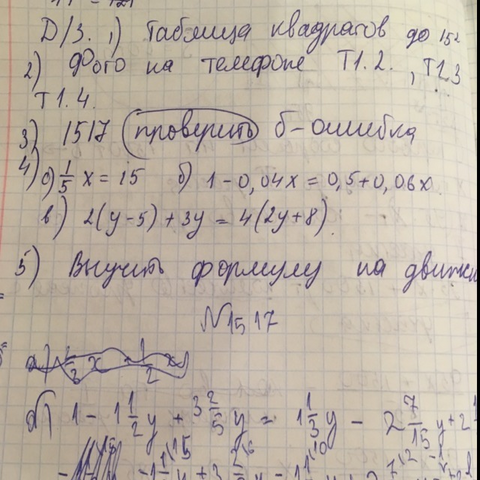 Д/З. 1) Таблица квадратов до 15²
2) Фото на телефоне Т1.2., Т1.3
Т1.4.
3) 1517 (проверить) б-ошибка
4) а) 1/5 x = 15 б) 1 - 0,04x = 0,5 + 0,06x
в) 2(y-5) + 3y = 4(2y+8)
5) Выучить формулу на движ
N1517
б) 1 - 1 1/2 y + 3 2/5 y = 1 1/3 y - 2 7/15 y + 2